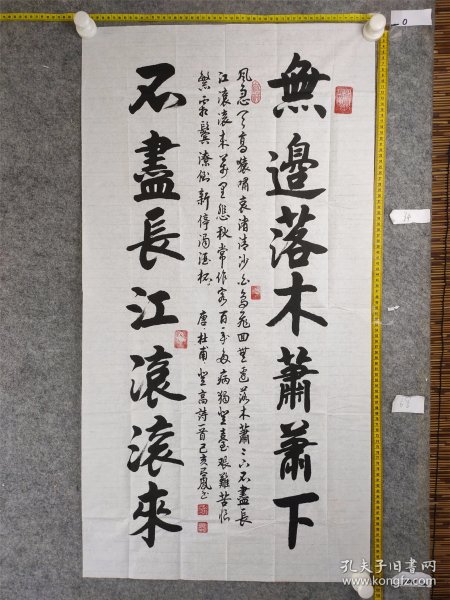 無邊落木蕭蕭下
風急天高猿嘯哀渚清沙白鳥飛回無邊落木蕭々下不盡長
江滾滾來萬里悲秋常作客百年多病獨登臺艱難苦恨
繁霜鬢潦倒新停濁酒杯 唐·杜甫登高詩一首己亥
不盡長江滾滾來
孔夫子旧书网
www.kongfz.com